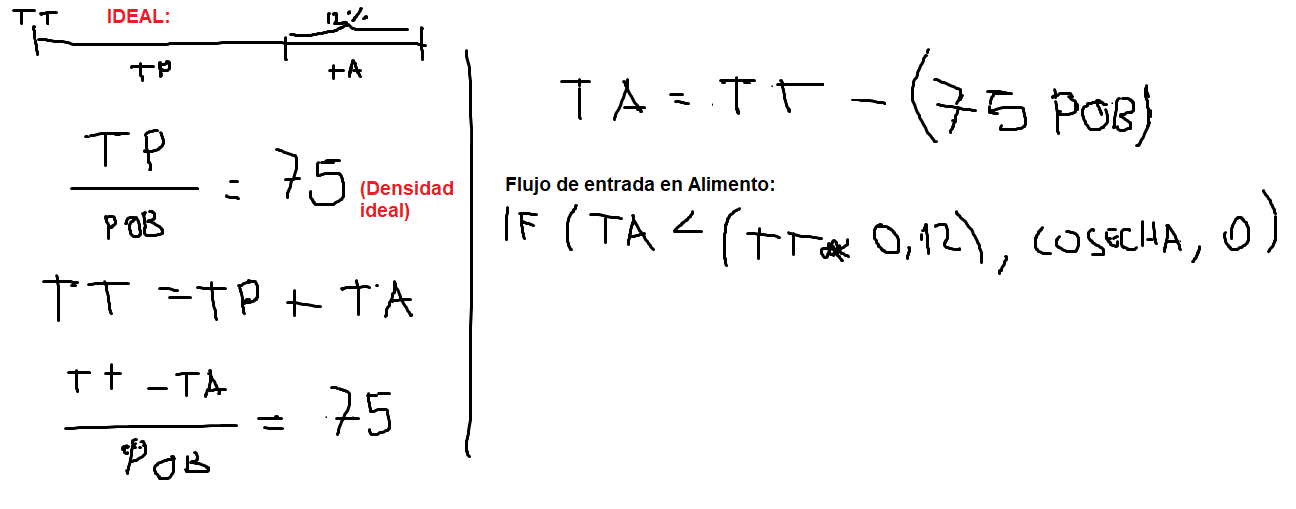 TT IDEAL: 12%
TP TA
TP
75
POB
= 75 (Densidad ideal)
TT = TP + TA
TT - TA
POB
= 75
TA = TT - (75 POB)
Flujo de entrada en Alimento:
IF (TA < (TT * 0,12), COSECHA, 0)